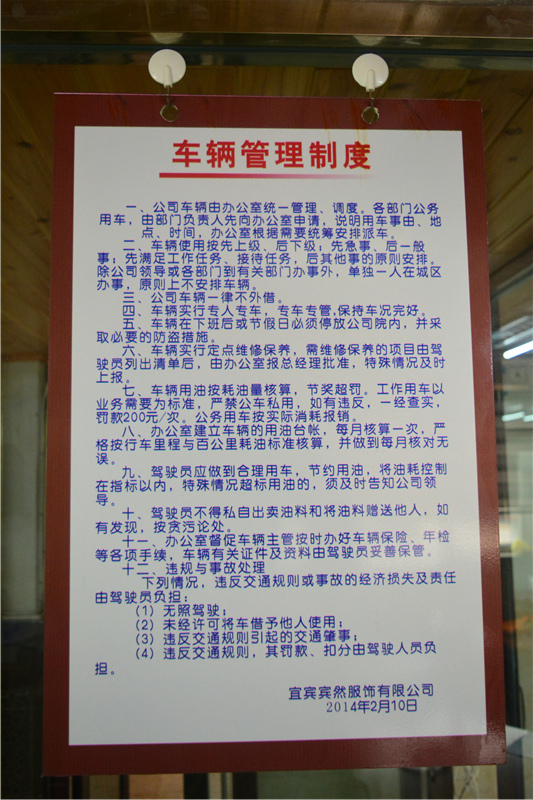 车辆管理制度
一、公司车辆由办公室统一管理、调度。各部门公务
用车，由部门负责人先向办公室申请，说明用车事由、地
点、时间，办公室根据需要统筹安排派车。
二、车辆使用按先上级、后下级；先急事、后一般
事；先满足工作任务、接待任务，后其他事的原则安排。
除公司领导或各部门到有关部门办事外，单独一人在城区
办事，原则上不安排车辆。
三、公司车辆一律不外借。
四、车辆实行专人专车，专车专管,保持车况完好。
五、车辆在下班后或节假日必须停放公司院内，并采
取必要的防盗措施。
六、车辆实行定点维修保养，需维修保养的项目由驾
驶员列出清单后，由办公室报总经理批准，特殊情况及时
上报。
七、车辆用油按耗油量核算，节奖超罚。工作用车以
业务需要为标准，严禁公车私用，如有违反，一经查实，
罚款200元/次。公务用车按实际消耗报销。
八、办公室建立车辆的用油台帐，每月核算一次，严
格按行车里程与百公里耗油标准核算，并做到每月核对无
误。
九、驾驶员应做到合理用车，节约用油，将油耗控制
在指标以内，特殊情况超标用油的，须及时告知公司领
导。
十、驾驶员不得私自出卖油料和将油料赠送他人，如
有发现，按贪污论处。
十一、办公室督促车辆主管按时办好车辆保险、年检
等各项手续，车辆有关证件及资料由驾驶员妥善保管。
十二、违规与事故处理
下列情况，违反交通规则或事故的经济损失及责任
由驾驶员负担：
（1）无照驾驶；
（2）未经许可将车借予他人使用；
（3）违反交通规则引起的交通肇事；
（4）违反交通规则，其罚款、扣分由驾驶人员负
担。
宜宾宾然服饰有限公司
2014年2月10日